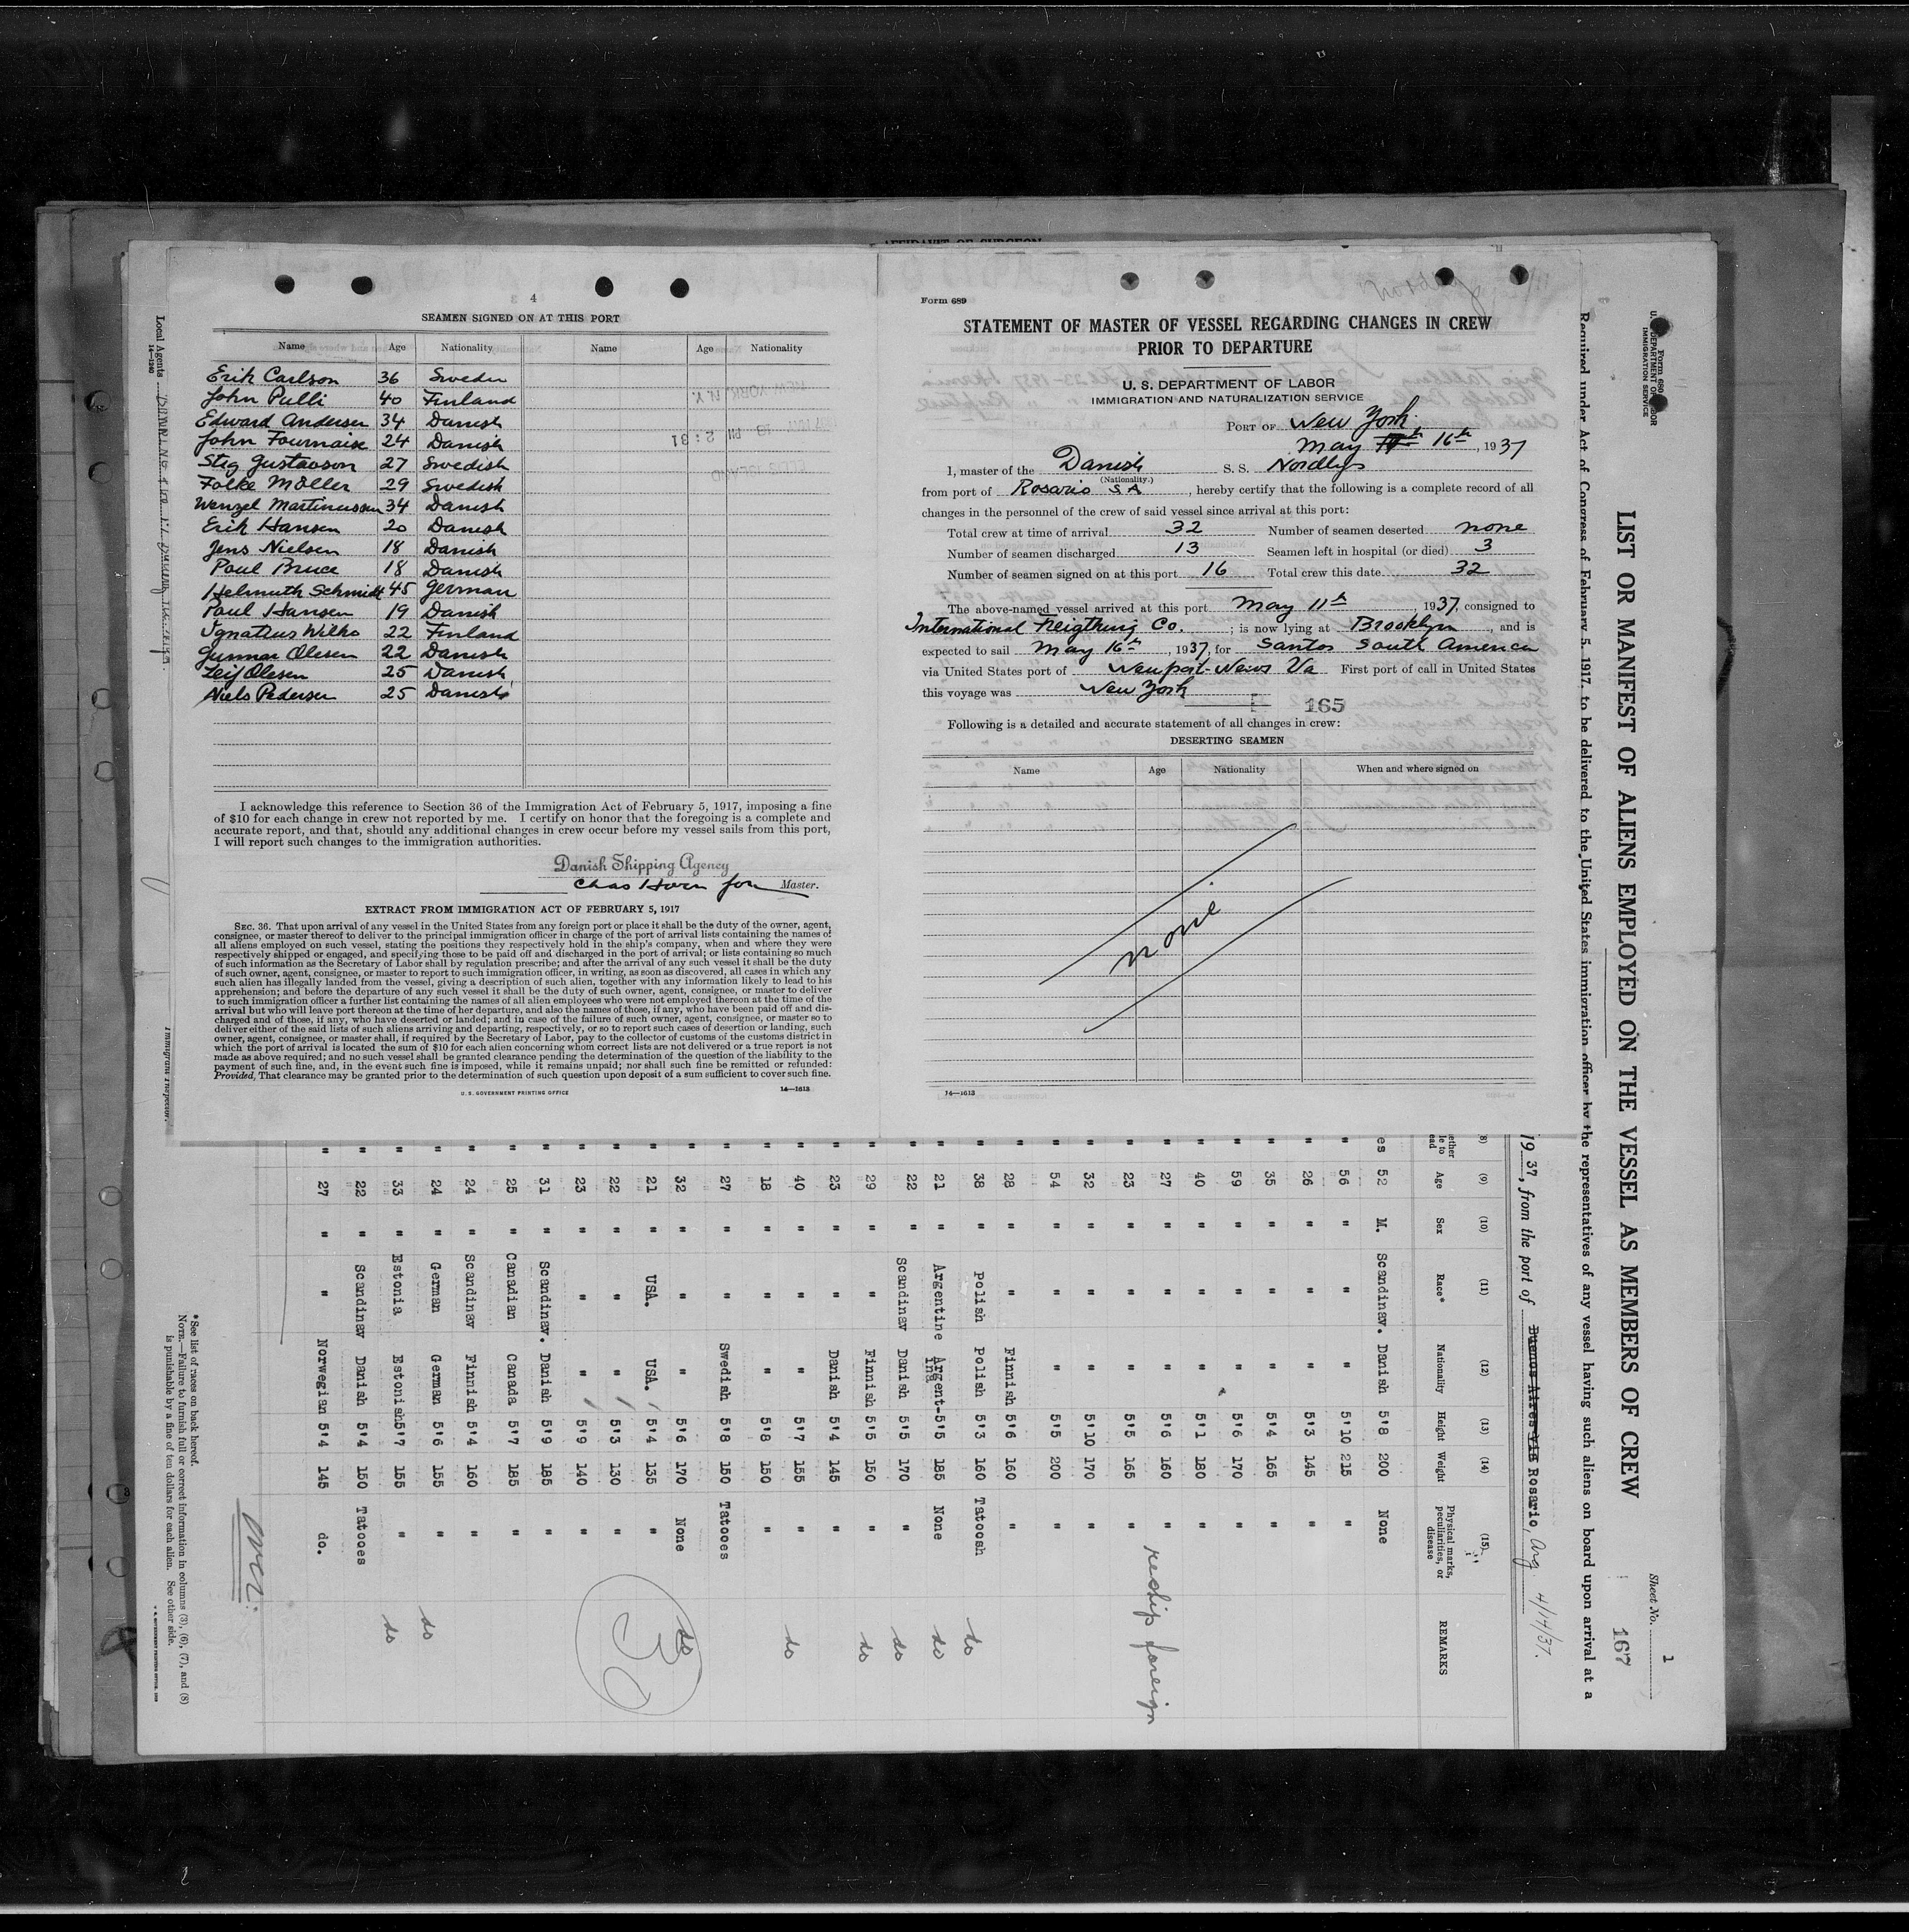 AFFIDAVIT OF SURGEON
4
SEAMEN SIGNED ON AT THIS PORT
Name Age Nationality Name Age Nationality
Erik Carlson 36 Sweden
John Pulli 40 Finland
Edward Andersen 34 Danish
John Fournaise 24 Danish
Stig Gustavson 27 Swedish
Folke Möller 29 Swedish
Wenzel Martinussen 34 Danish
Erik Hansen 20 Danish
Jens Nielsen 18 Danish
Paul Bruce 18 Danish
Helmuth Schmidt 45 German
Paul Hansen 19 Danish
Ignatius Wilks 22 Finland
Gunnar Olesen 22 Danish
Leif Olesen 25 Danish
Niels Pedersen 25 Danish
I acknowledge this reference to Section 36 of the Immigration Act of February 5, 1917, imposing a fine
of $10 for each change in crew not reported by me. I certify on honor that the foregoing is a complete and
accurate report, and that, should any additional changes in crew occur before my vessel sails from this port,
I will report such changes to the immigration authorities.
Danish Shipping Agency
Chas Horn for Master.
EXTRACT FROM IMMIGRATION ACT OF FEBRUARY 5, 1917
SEC. 36. That upon arrival of any vessel in the United States from any foreign port or place it shall be the duty of the owner, agent,
consignee, or master thereof to deliver to the principal immigration officer in charge of the port of arrival lists containing the names of
all aliens employed on such vessel, stating the positions they respectively hold in the ship's company, when and where they were
respectively shipped or engaged, and specifying those to be paid off and discharged in the port of arrival; or lists containing so much
of such information as the Secretary of Labor shall by regulation prescribe; and after the arrival of any such vessel it shall be the duty
of such owner, agent, consignee, or master to report to such immigration officer, in writing, as soon as discovered, all cases in which any
such alien has illegally landed from the vessel, giving a description of such alien, together with any information likely to lead to his
apprehension; and before the departure of any such vessel it shall be the duty of such owner, agent, consignee, or master to deliver
to such immigration officer a further list containing the names of all alien employees who were not employed thereon at the time of the
arrival but who will leave port thereon at the time of her departure, and also the names of those, if any, who have been paid off and dis-
charged and of those, if any, who have deserted or landed; and in case of the failure of such owner, agent, consignee, or master so to
deliver either of the said lists of such aliens arriving and departing, respectively, or so to report such cases of desertion or landing, such
owner, agent, consignee, or master shall, if required by the Secretary of Labor, pay to the collector of customs of the customs district in
which the port of arrival is located the sum of $10 for each alien concerning whom correct lists are not delivered or a true report is not
made as above required; and no such vessel shall be granted clearance pending the determination of the question of the liability to the
payment of such fine, and, in the event such fine is imposed, while it remains unpaid; nor shall such fine be remitted or refunded:
Provided, That clearance may be granted prior to the determination of such question upon deposit of a sum sufficient to cover such fine.
U. S. GOVERNMENT PRINTING OFFICE 14—1613
Form 689
STATEMENT OF MASTER OF VESSEL REGARDING CHANGES IN CREW
PRIOR TO DEPARTURE
U. S. DEPARTMENT OF LABOR
IMMIGRATION AND NATURALIZATION SERVICE
PORT OF New York
May 16th, 1937
I, master of the Danish S. S. Nordlys
(Nationality.)
from port of Rosario SA, hereby certify that the following is a complete record of all
changes in the personnel of the crew of said vessel since arrival at this port:
Total crew at time of arrival 32 Number of seamen deserted none
Number of seamen discharged 13 Seamen left in hospital (or died) 3
Number of seamen signed on at this port 16 Total crew this date 32
The above-named vessel arrived at this port May 11th, 1937, consigned to
International Freigthing Co.; is now lying at Brooklyn, and is
expected to sail May 16th, 1937, for Santos South America
via United States port of Newport-News Va First port of call in United States
this voyage was New York
165
Following is a detailed and accurate statement of all changes in crew:
DESERTING SEAMEN
Name Age Nationality When and where signed on
none
14—1613
Form 680
U. S. DEPARTMENT OF LABOR
IMMIGRATION SERVICE
LIST OR MANIFEST OF ALIENS EMPLOYED ON THE VESSEL AS MEMBERS OF CREW
Sheet No. 1
167
Required under Act of Congress of February 5, 1917, to be delivered to the United States immigration officer by the representatives of any vessel having such aliens on board upon arrival at a
1937, from the port of Buenos Aires via Rosario, Arg 4/14/37.
(8) (9) (10) (11) (12) (13) (14) (15)
Age Sex Race* Nationality Height Weight Physical marks, peculiarities, or disease REMARKS
es 52 M. Scandinav. Danish 5'8 200 None
" 56 " " " 5'10 215 "
" 26 " " " 5'3 145 "
" 35 " " " 5'4 165 "
" 59 " " " 5'6 170 "
" 40 " " " 5'1 180 "
" 27 " " " 5'6 160 " reship foreign
" 23 " " " 5'5 165 "
" 32 " " " 5'10 170 "
" 54 " " " 5'5 200 "
" 28 " " Finnish 5'6 160 "
" 38 " Polish Polish 5'3 160 Tatoosh do
" 21 " Argentine Argent-ina 5'5 185 None do
" 22 " Scandinav Danish 5'5 170 " do
" 29 " " Finnish 5'5 150 " do
" 23 " " Danish 5'4 145 "
" 40 " " " 5'7 155 " do
" 18 " " " 5'8 150 "
" 27 " " Swedish 5'8 150 Tatooes
" 32 " " " 5'6 170 None do
" 21 " USA. USA. 5'4 135 "
" 22 " " " 5'3 130 "
" 23 " " " 5'9 140 "
" 31 " Scandinav. Danish 5'9 185 "
" 25 " Canadian Canada 5'7 185 "
" 24 " Scandinav Finnish 5'4 160 "
" 24 " German German 5'6 155 " do
" 33 " Estonia Estonish 5'7 155 " do
" 22 " Scandinav Danish 5'4 150 Tatooes
" 27 " " Norwegian 5'4 145 do.
30
over.
*See list of races on back hereof.
NOTE.—Failure to furnish full or correct information in columns (3), (6), (7), and (8)
is punishable by a fine of ten dollars for each alien. See other side.
Local Agents
14—1240
Immigrant Inspector.